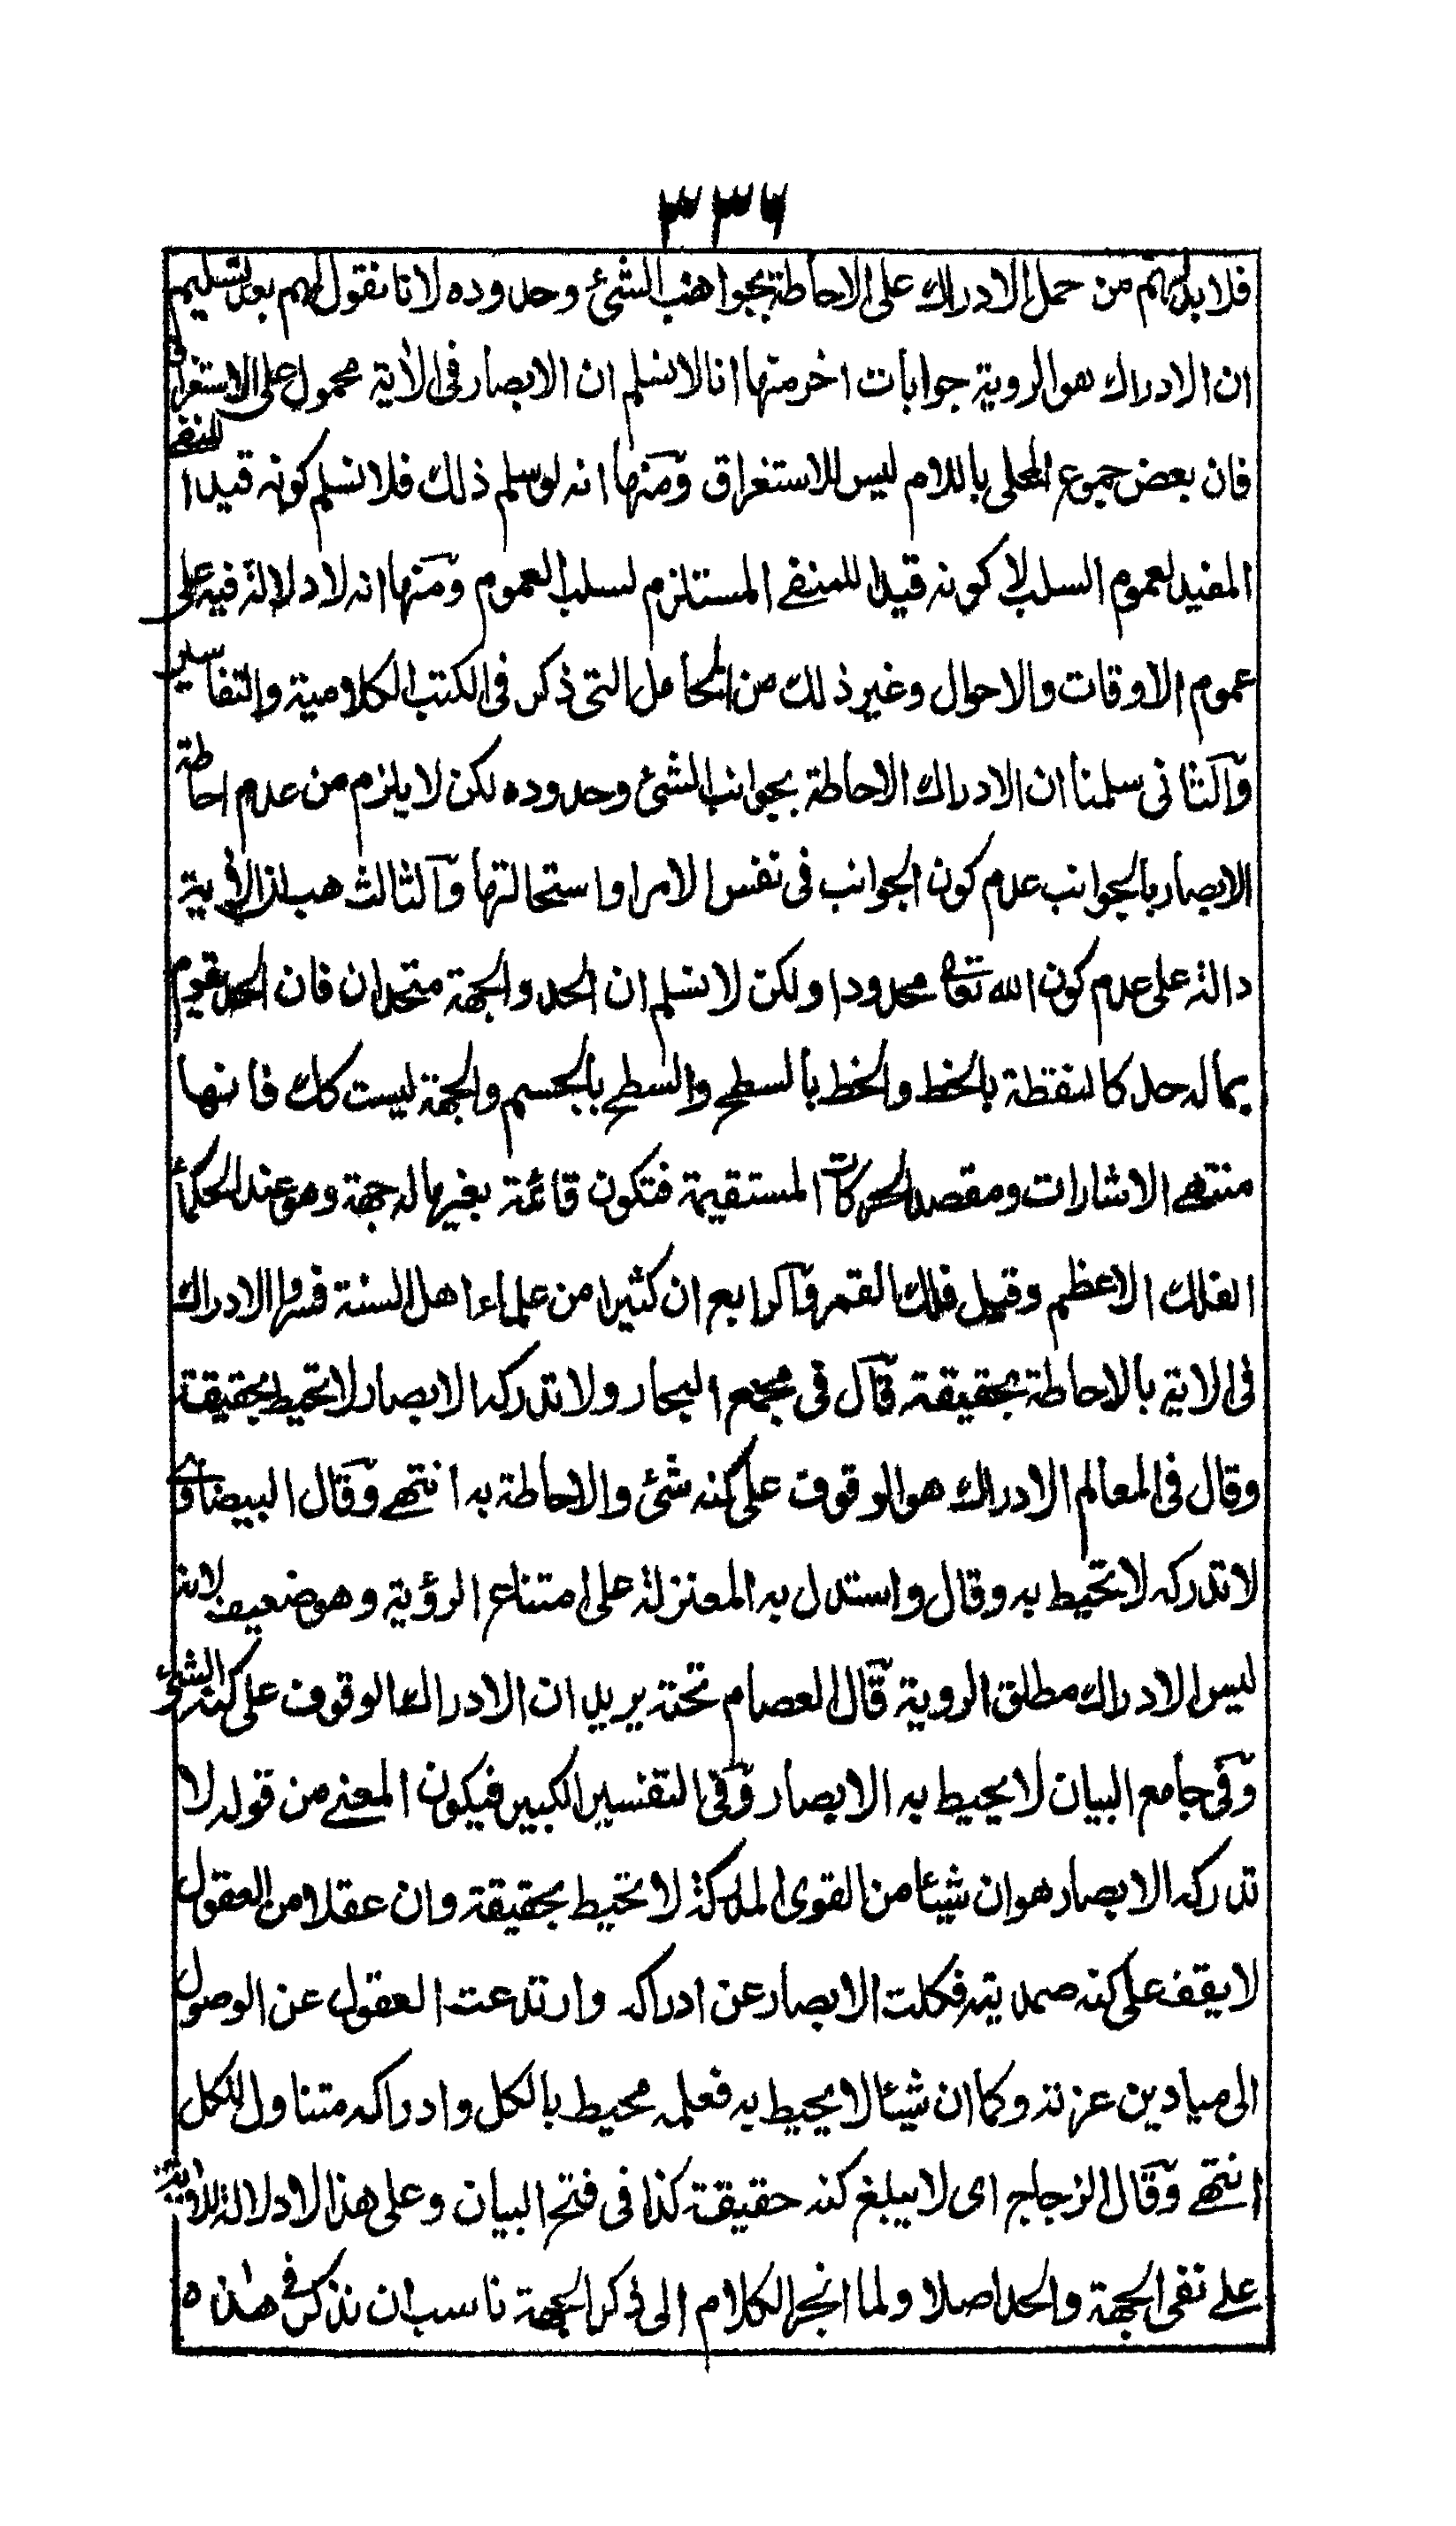 ٣٣٦
فلا بد لهم من حمل الادراك على الاحاطة بجوانب الشئ وحدوده لانا نقول لهم بعد تسليم
ان الادراك هو الروية جوابات اخر منها انا لا نسلم ان الابصار فى الأية محمول على الاستغراق
فان بعض جموع المحلى باللام ليس للاستغراق ومنها انه لو سلم ذلك فلا نسلم كونه قيدا للنفے
المفيد لعموم السلب لا كونه قيدا للمنفے المستلزم لسلب العموم ومنها انه لا دلالة فيه على
عموم الاوقات والاحوال وغير ذلك من المحامل التى ذكر فى الكتب الكلامية والتفاسير
والثانى سلمنا ان الادراك الاحاطة بجوانب الشئ وحدوده لكن لا يلزم من عدم احاطة
الابصار بالجوانب عدم كون الجوانب فى نفس الامر او استحالتها والثالث هب ان الاية
دالة على عدم كون الله تعالى محدودا ولكن لا نسلم ان الحد والجهة متحدان فان الحد يقوم
بماله حد كالنقطة بالخط والخط بالسطح والسطح بالجسم والجهة ليست كك فانها
منتهے الاشارات ومقصد الحركات المستقيمة فتكون قائمة بغيرها له جهة وهو عند الحكماء
الفلك الاعظم وقيل فلك القمر والرابع ان كثيرا من علماء اهل السنة فسروا الادراك
فى الاية بالاحاطة بحقيقته قال فى مجمع البحار ولا تدركه الابصار لا تحيط بحقيقته
وقال فى المعالم الادراك هو الوقوف على كنه شئ والاحاطة به انتهے وقال البيضاوى
لا تدركه لا تحيط به وقال واستدل به المعتزلة على امتناع الرؤية وهو ضعيف لانه
ليس الادراك مطلق الروية قال العصام تحته يريد ان الادراك الوقوف على كنه الشئ
وفى جامع البيان لا يحيط به الابصار وفى التفسير الكبير فيكون المعنے من قوله لا
تدركه الابصار هو ان شيئا من القوى المدركة لا تحيط بحقيقته وان عقلا من العقول
لا يقف على كنه صمديته فكلت الابصار عن ادراكه وارتدعت العقول عن الوصول
الى ميادين عزته وكما ان شيئا لا يحيط به فعلمه محيط بالكل وادراكه متناول للكل
انتهے وقال الزجاج اى لا يبلغ كنه حقيقته كذا فى فتح البيان وعلى هذا لا دلالة للاية
علے نفى الجهة والحد اصلا ولما انجر الكلام الى ذكر الجهة ناسب ان نذكر فى هذه